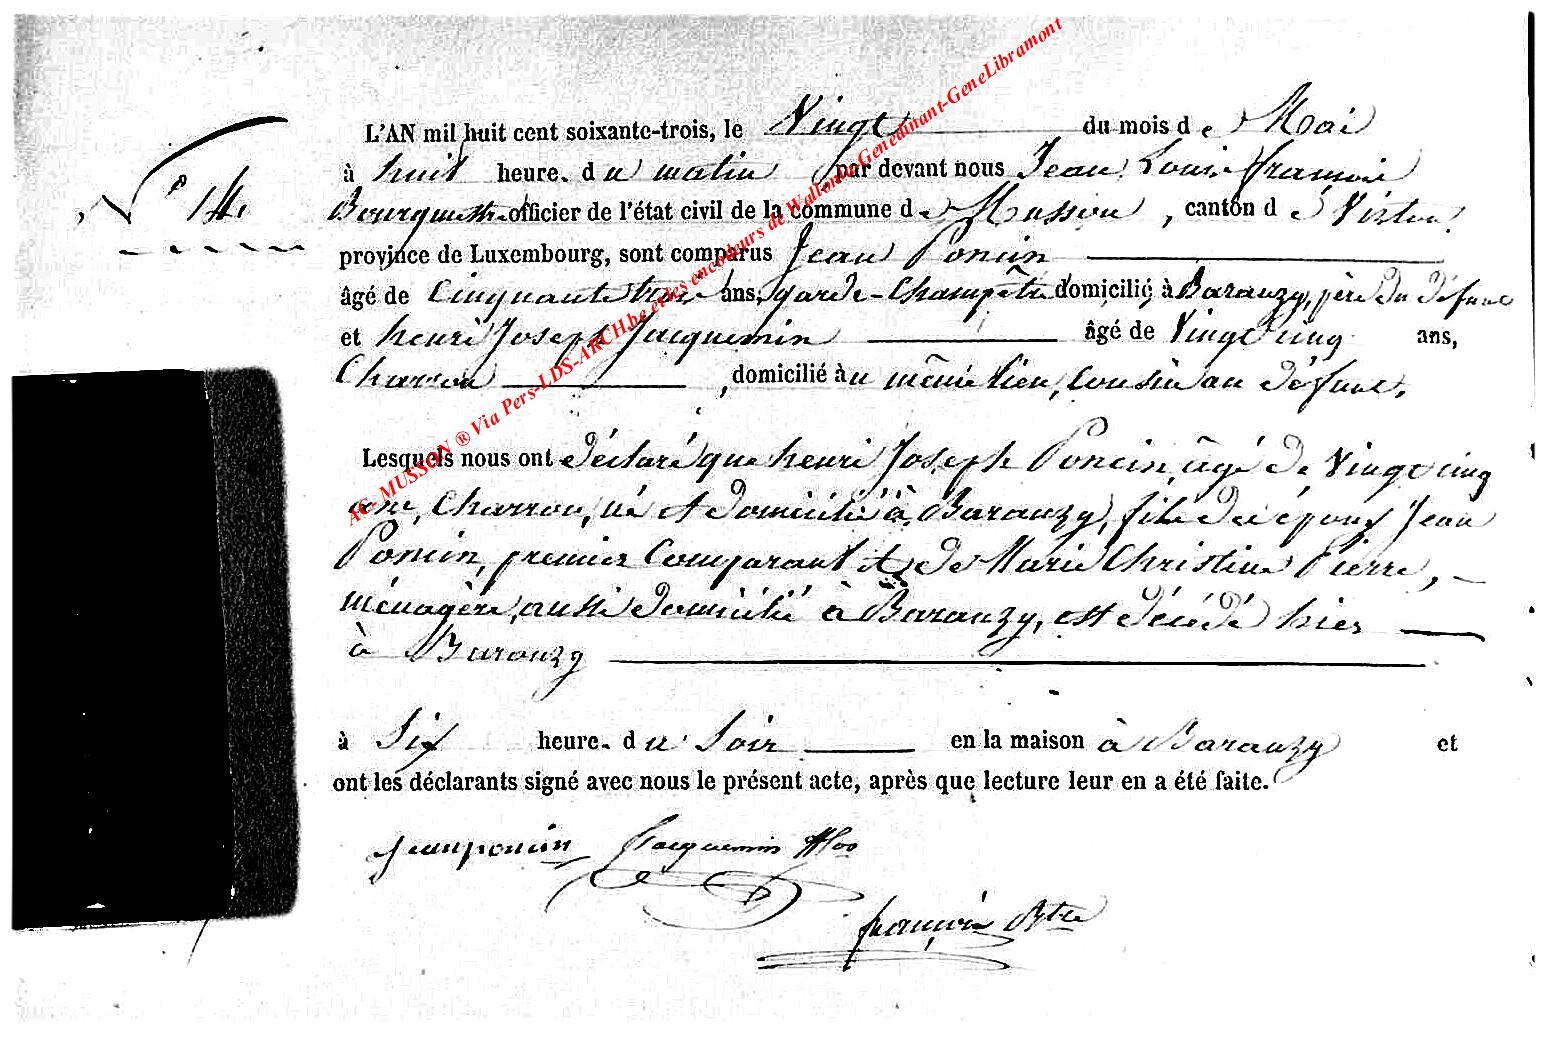 N° 14.
L'AN mil huit cent soixante-trois, le Vingt du mois de Mai
à huit heure. du matin par devant nous Jean Louis françois
officier de l'état civil de la commune de Musson, canton de Virton,
province de Luxembourg, sont comparus Jean Poncin
âgé de Cinquante trois ans, garde-Champêtre domicilié à Baranzy, père du défunt
et henri Joseph Jacquemin âgé de Vingt cinq ans,
Charron, domicilié au même lieu, cousin au défunt.
Lesquels nous ont déclaré que henri Joseph Poncin, âgé de Vingt cinq
ans, Charron, né et domicilié à Baranzy, fils des époux Jean
Poncin, premier Comparant et de Marie Christine Pierre,
ménagère, aussi domicilié à Baranzy, est décédé hier
à Baranzy
à Six heure. du Soir en la maison à Baranzy et
ont les déclarants signé avec nous le présent acte, après que lecture leur en a été faite.
jean poncin Jacquemin
françois Btre
AC- MUSSON ® Via Pers-LDS-ARCH.be et les encodeurs de Wallonia-Genedinant-GeneLibramont